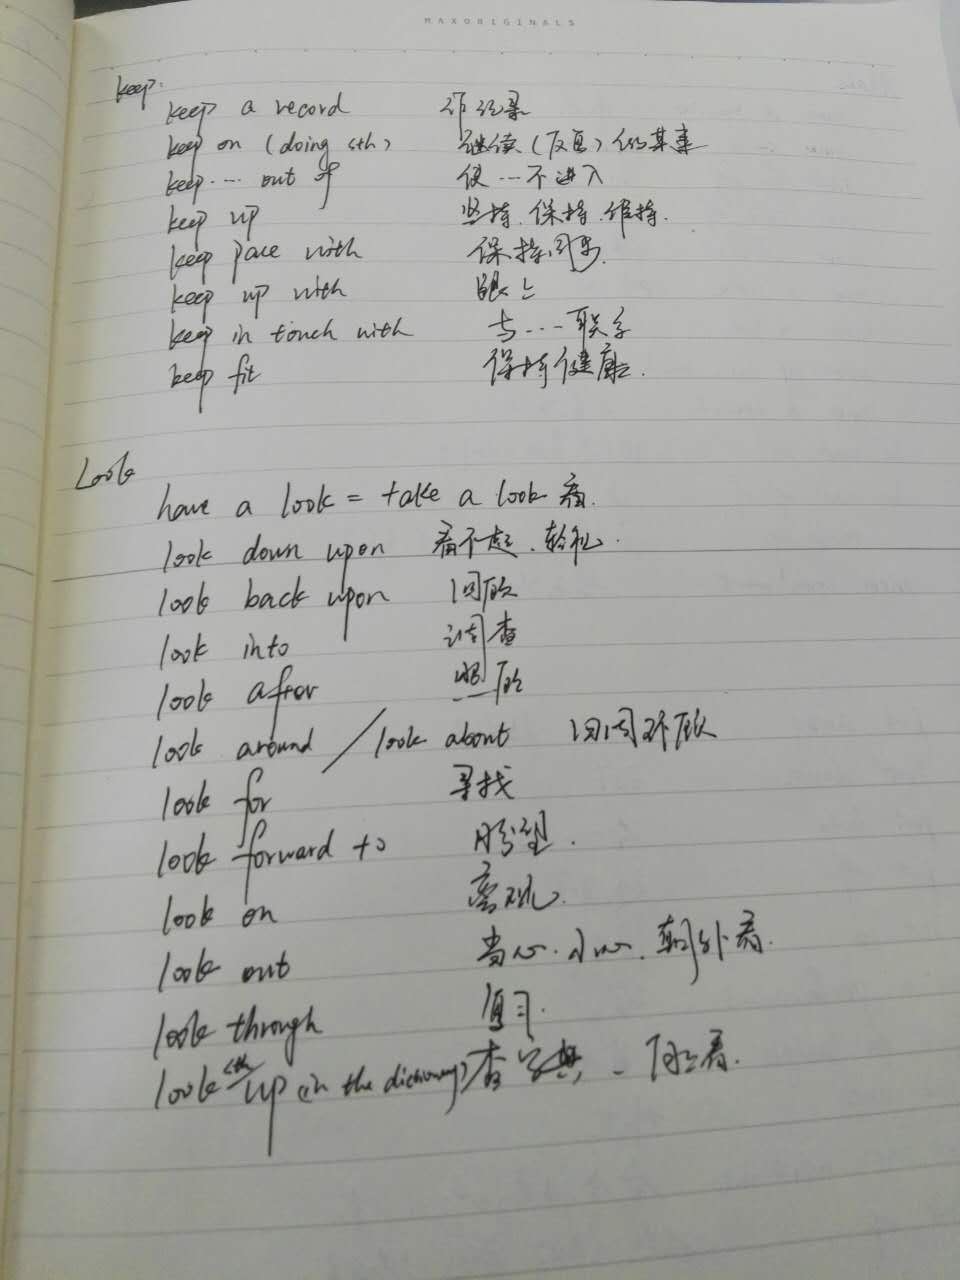 MAXORIGINALS
keep:
keep a record 作记录
keep on (doing sth) 继续(反复)做某事
keep ... out of 使...不进入
keep up 坚持、保持、维持.
keep pace with 保持同步.
keep up with 跟上
keep in touch with 与...联系
keep fit 保持健康.
Look
have a look = take a look 看.
look down upon 看不起、轻视.
look back upon 回顾
look into 调查
look after 照顾
look around / look about 环顾
look for 寻找
look forward to 盼望.
look on 旁观.
look out 当心.小心.朝外看.
look through 复习.
look sth up (in the dictionary) 查字典, 向上看.